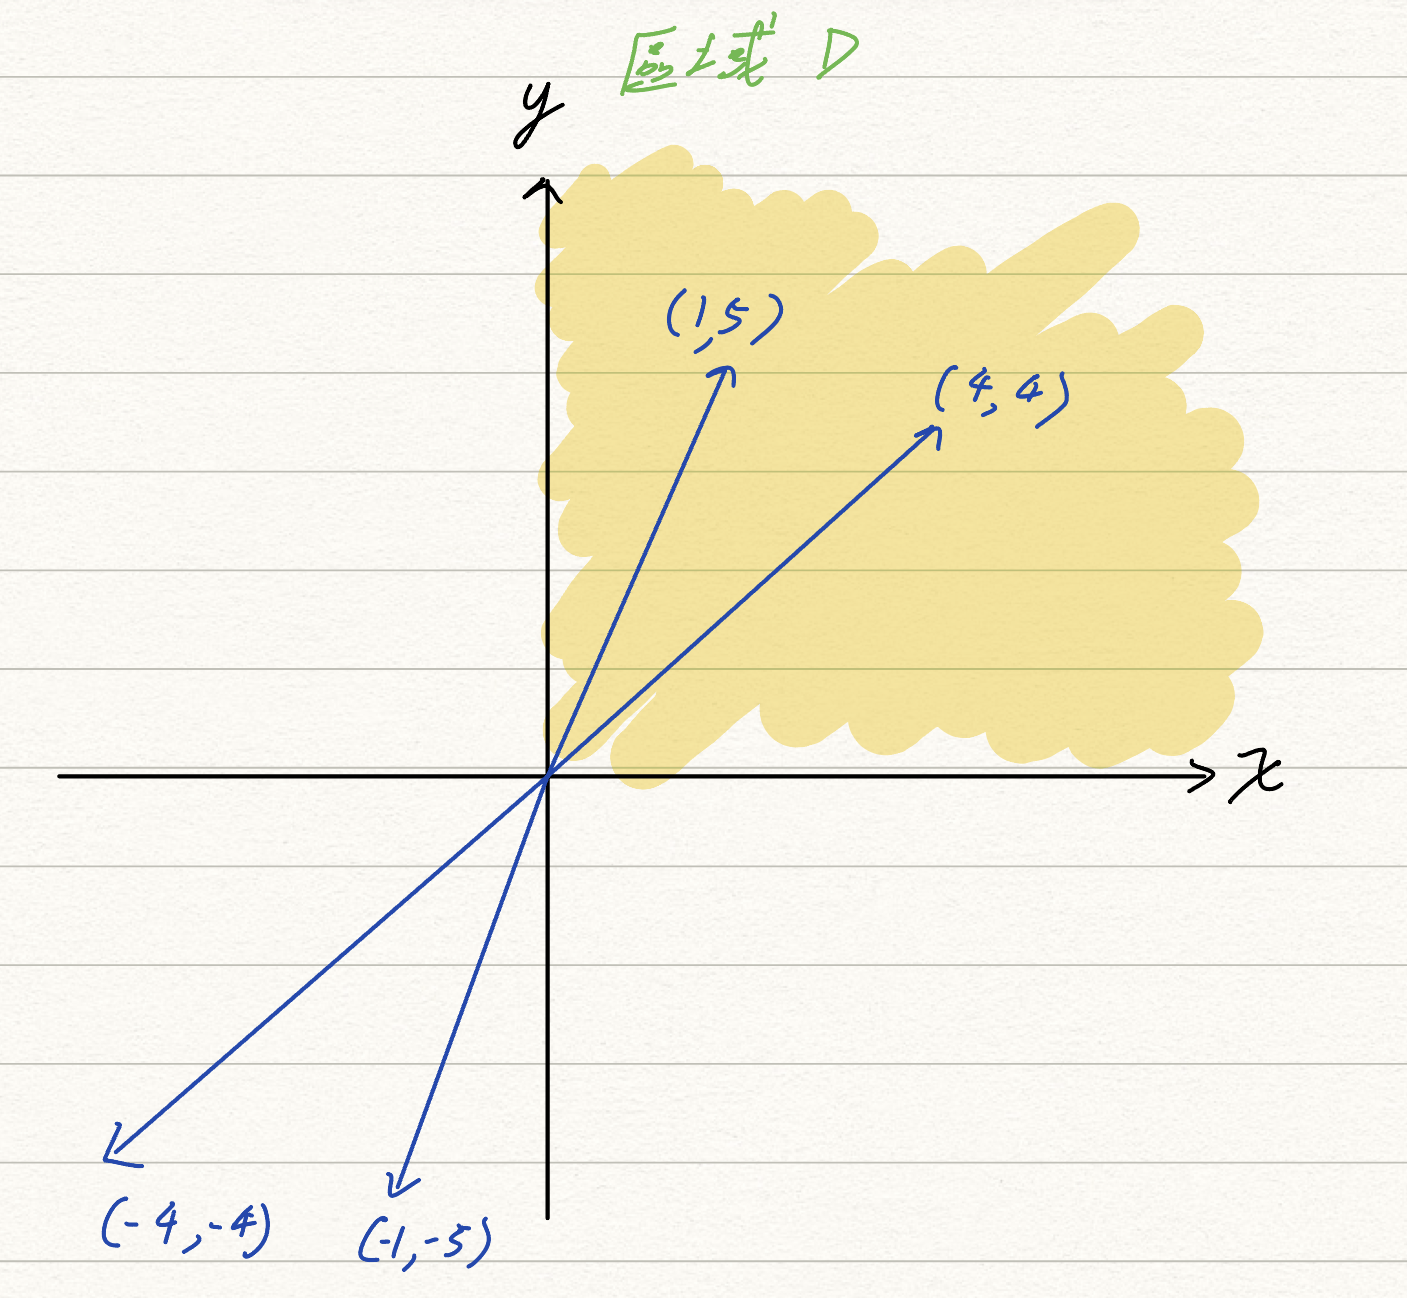 區域 D
y
(1,5)
(4,4)
x
(-4,-4)
(-1,-5)